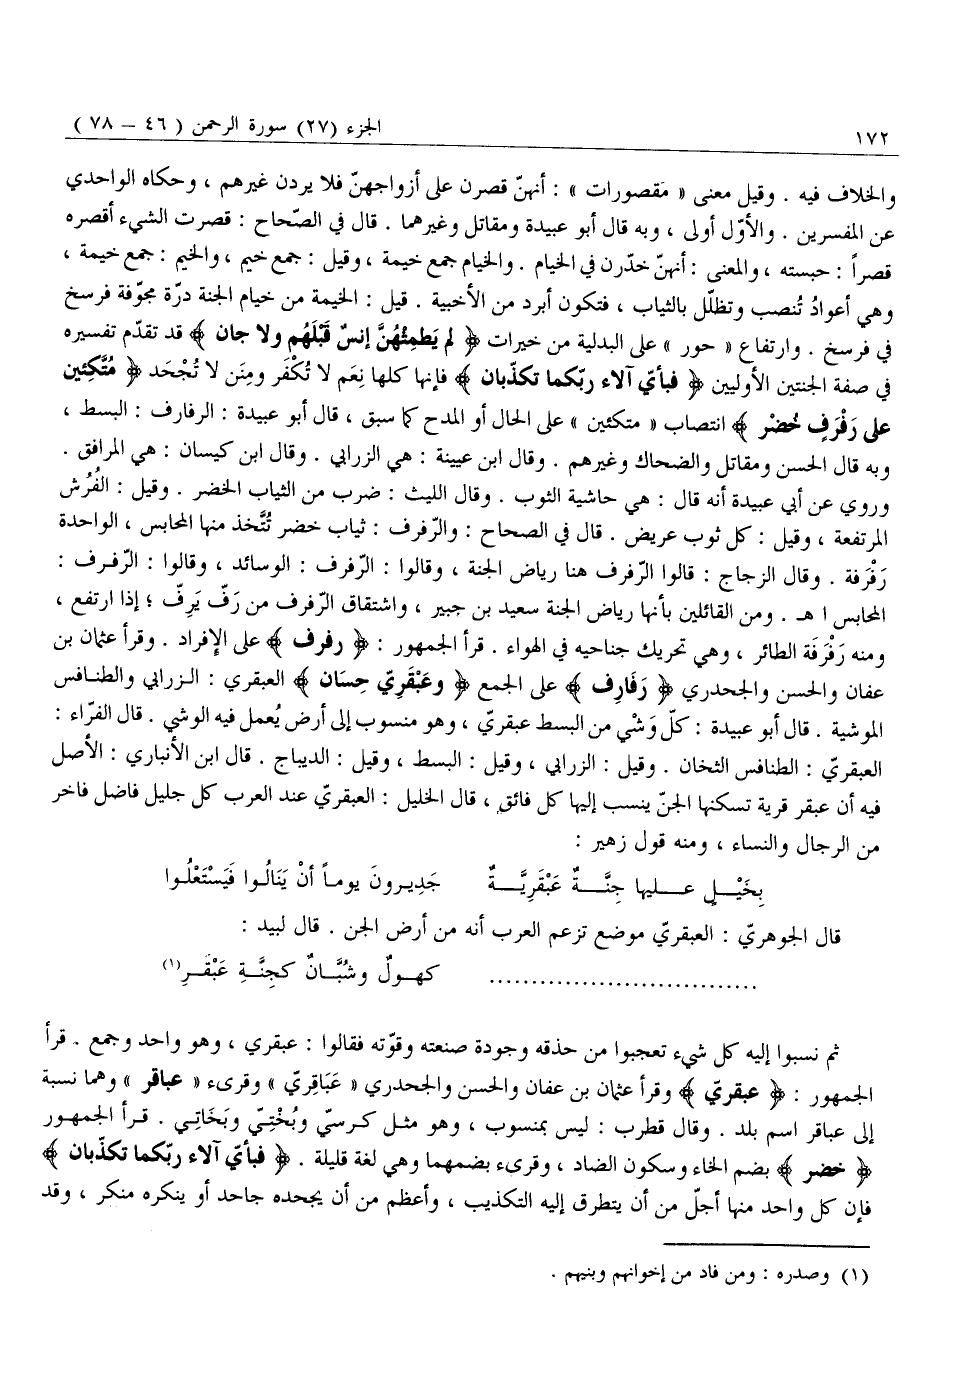 ١٧٢ الجزء (٢٧) سورة الرحمن ( ٤٦ – ٧٨ )
والخلاف فيه . وقيل معنى « مَقصورات » : أنهنّ قصرن على أزواجهنّ فلا يردن غيرهم ، وحكاه الواحدي
عن المفسرين . والأوّل أولى ، وبه قال أبو عبيدة ومقاتل وغيرهما . قال في الصّحاح : قصرت الشيء أقصره
قصراً : حبسته ، والمعنى : أنهنّ خدّرن في الخيام . والخيام جمع خيمة ، وقيل : جمع خيم ، والخيم : جمع خيمة ،
وهي أعوادُ تُنصب وتظلّل بالثياب ، فتكون أبرد من الأخبية . قيل : الخيمة من خيام الجنة درّة مجوّفة فرسخ
في فرسخ . وارتفاع « حور » على البدلية من خيرات ﴿ لم يَطمِثْهُنَّ إنسٌ قَبْلَهُم ولا جان ﴾ قد تقدّم تفسيره
في صفة الجنتين الأوليين ﴿ فبأيّ آلاء ربّكما تكذّبان ﴾ فإنها كلها نِعَم لا تُكْفَر ومِنَن لا تُجْحَد ﴿ مُتَّكِئين
على رَفْرَفٍ خُضْر ﴾ انتصاب « متكئين » على الحال أو المدح كما سبق ، قال أبو عبيدة : الرفارف : البسط ،
وبه قال الحسن ومقاتل والضحاك وغيرهم . وقال ابن عيينة : هي الزرابي . وقال ابن كيسان : هي المرافق .
وروي عن أبي عبيدة أنه قال : هي حاشية الثوب . وقال الليث : ضرب من الثياب الخضر . وقيل : الفُرُش
المرتفعة ، وقيل : كل ثوب عريض . قال في الصحاح : والرّفرف : ثياب خضر تُتَّخذ منها المحابس ، الواحدة
رَفْرَفة . وقال الزجاج : قالوا الرّفرف هنا رياض الجنة ، وقالوا : الرّفرف : الوسائد ، وقالوا : الرّفـرف :
المحابس ا هـ . ومن القائلين بأنها رياض الجنة سعيد بن جبير ، واشتقاق الرّفرف من رَفّ يَرِفّ ؛ إذا ارتفع ،
ومنه رَفْرَفَة الطائر ، وهي تحريك جناحيه في الهواء . قرأ الجمهور : ﴿ رفرف ﴾ على الإفراد . وقرأ عثمان بن
عفان والحسن والجحدري ﴿ رَفَارِف ﴾ على الجمع ﴿ وعَبْقَرِيّ حِسَان ﴾ العبقري : الـزرابي والطنـافس
الموشية . قال أبو عبيدة : كلّ وَشْي من البسط عبقريّ ، وهو منسوب إلى أرض يُعمل فيه الوشي . قال الفرّاء :
العبقريّ : الطنافس الثخان . وقيل : الزرابي ، وقيل : البسط ، وقيل : الديباج . قال ابن الأنباري : الأصل
فيه أن عبقر قرية تسكنها الجنّ ينسب إليها كل فائق ، قال الخليل : العبقريّ عند العرب كل جليل فاضل فاخر
من الرجال والنساء ، ومنه قول زهير :
بِخَيْـلٍ عـليها جِنَّـةٌ عَبْقَرِيَّـةٌ جَدِيـرونَ يومـاً أنْ يَنَالُـوا فَيَسْتَعْلُـوا
قال الجوهريّ : العبقريّ موضع تزعم العرب أنه من أرض الجن . قال لبيد :
................................ كهـولٌ وشُبَّـانٌ كجِنَّـةِ عَبْقَـرِ(١)
ثم نسبوا إليه كل شيء تعجبوا من حذقه وجودة صنعته وقوّته فقالوا : عبقري ، وهو واحد وجمع . قرأ
الجمهور : ﴿ عبقريّ ﴾ وقرأ عثمان بن عفان والحسن والجحدري « عَبَاقِريّ » وقرىء « عباقر » وهما نسبة
إلى عباقر اسم بلد . وقال قطرب : ليس بمنسوب ، وهو مثـل كـرسيّ وبُخْتِـيّ وبَخَاتِـي . قـرأ الجمهـور
﴿ خضر ﴾ بضم الخاء وسكون الضاد ، وقرىء بضمهما وهي لغة قليلة . ﴿ فبأيّ آلاء ربّكما تكذّبان ﴾
فإن كل واحد منها أجلّ من أن يتطرق إليه التكذيب ، وأعظم من أن يجحده جاحد أو ينكره منكر ، وقد
(١) وصدره : ومن فاد من إخوانهم وبنيهم .